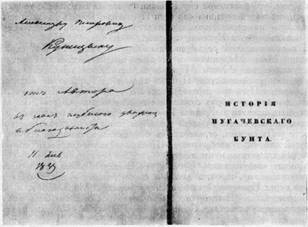 Александру Петровичу
Куницыну
отъ Автора
въ знакъ глубокаго уваженія
и благодарности
11 янв
1835
ИСТОРІЯ
ПУГАЧЕВСКАГО
БУНТА.